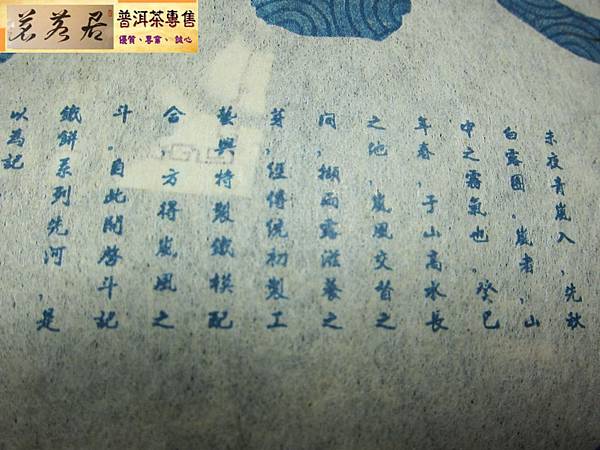 茗若居
普洱茶專售
優質、專業、誠心
未夜青嵐入，先秋
白露團。嵐者，山
中之霧氣也。癸巳
年春，于山高水長
之地，嵐風交替之
间，擷雨露滋養之
芽，經傳统初製工
藝與特製鐵模配
合，方得嵐風之
斗。自此開啓斗記
鐵餅系列先河，是
以為記